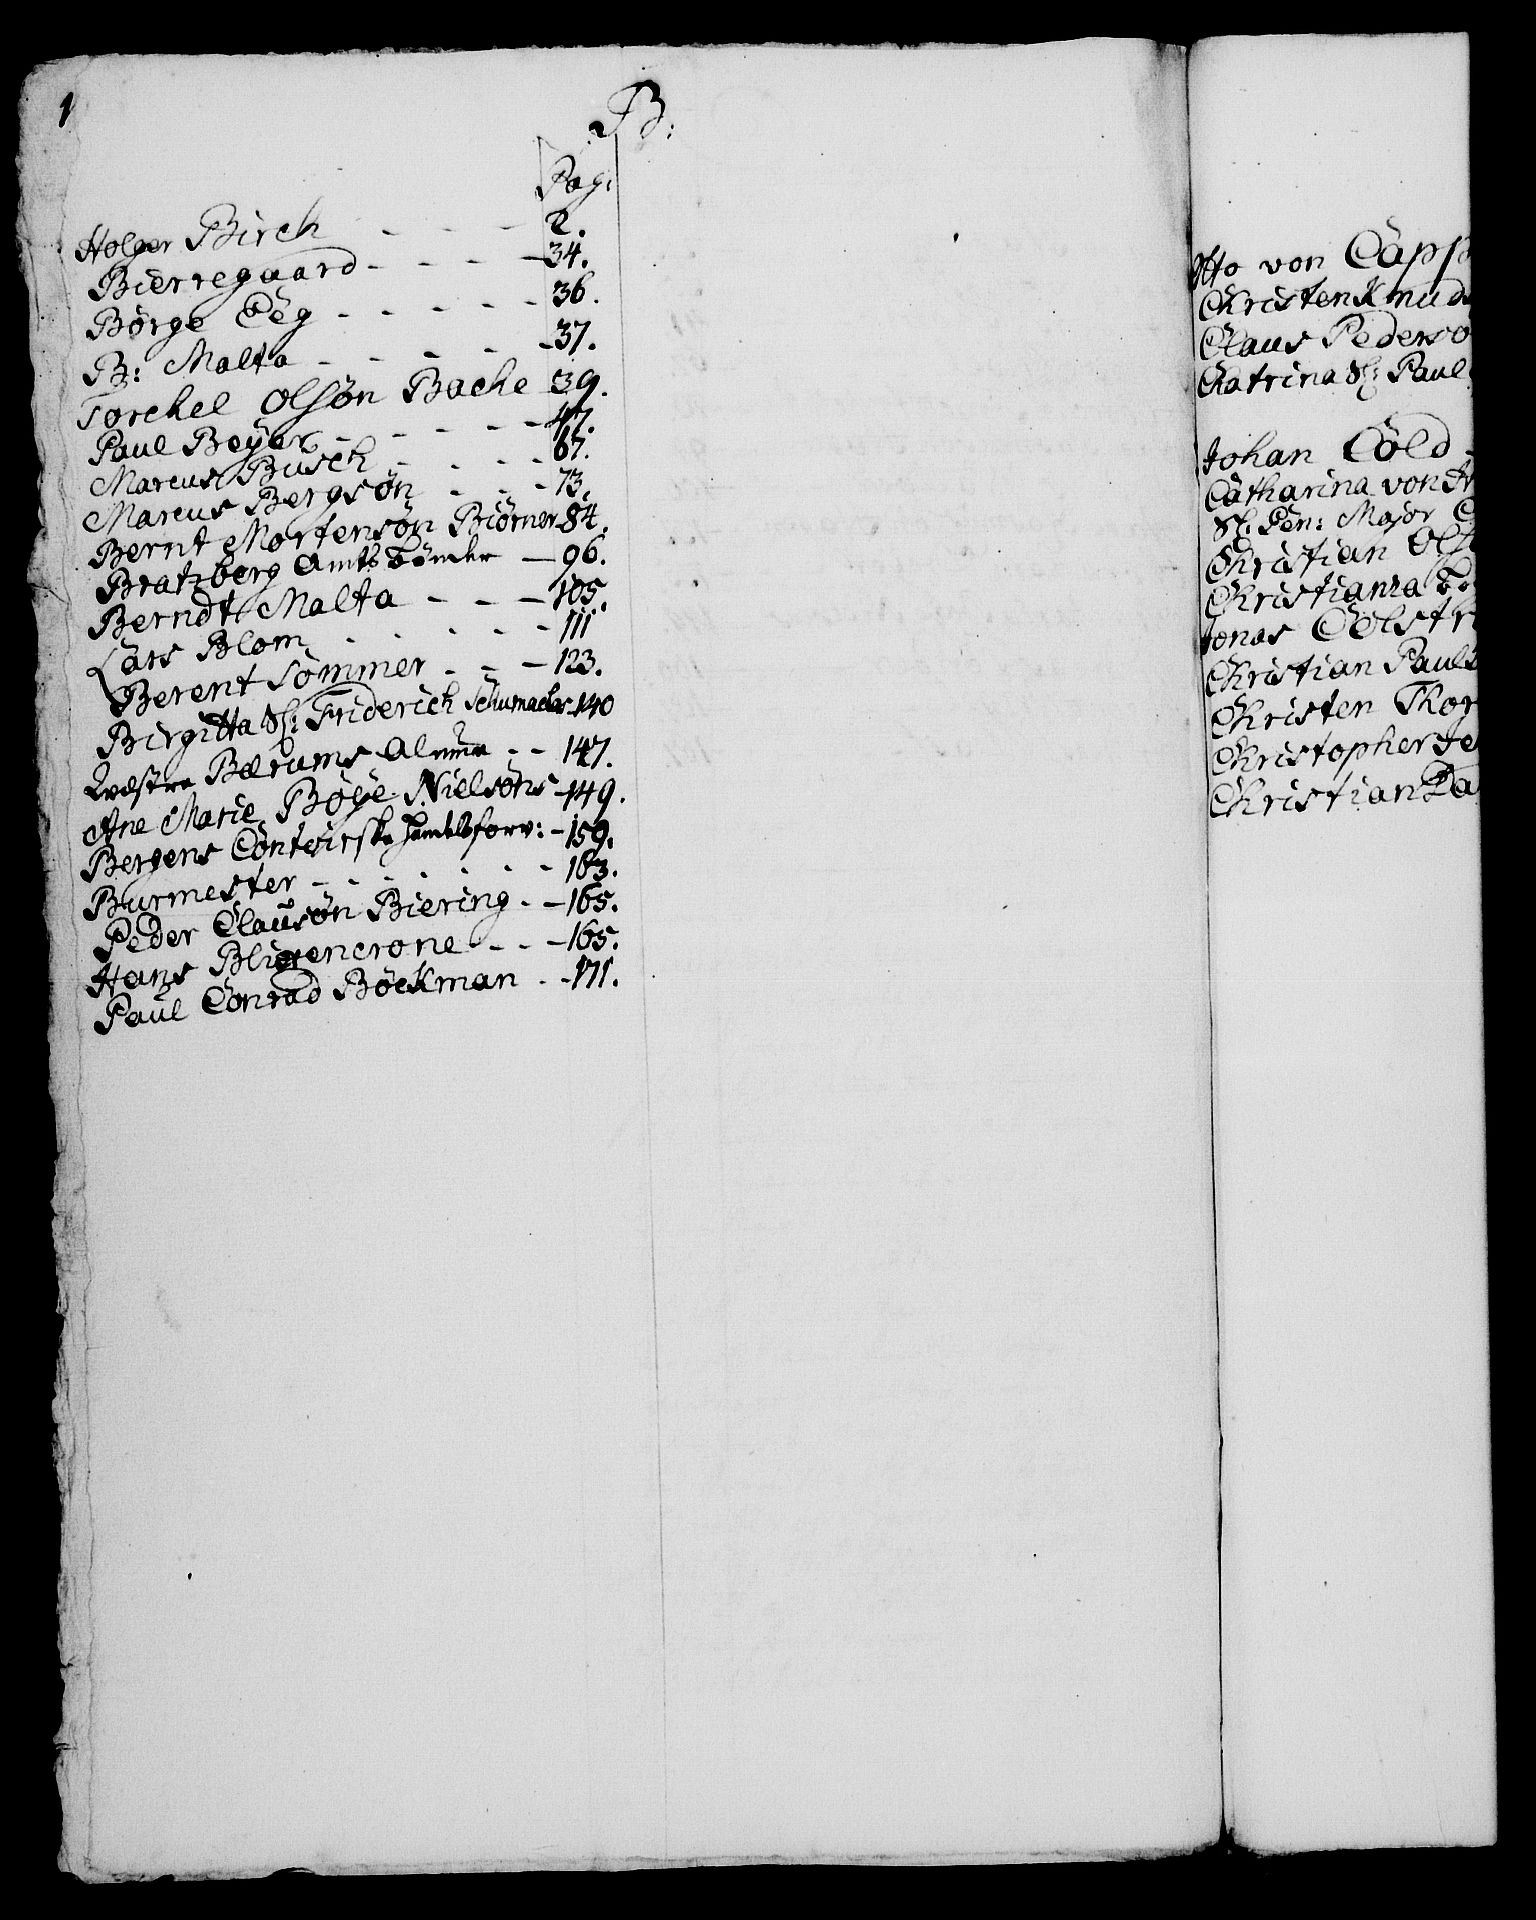 1
B:
Pag:
Holger Birch - - - - 2.
Bierregaard - - - - 34.
Börge Eeg - - - - - 36.
B: Malta - - - - - 37.
Torchel Olsön Bache 39.
Paul Beÿer - - - - - 47.
Marcus Busch - - - - 67.
Marcus Bergsön - - - 73.
Bernt Mortensön Biörner 84.
Bratzberg Amts Bönder - 96.
Berndt Malta - - - 105.
Lars Blom - - - - - 111
Berent Sommer - - - 123.
Birgitta Sl: Friderich Schumacher 140
Bærums Almue - - 147.
Ane Marie Böÿe Nielsöns - 149.
Bergens Contoirske Handelsforv: - 159.
Burmester - - - - - - 163.
Peder Clausön Biering - - 165.
Hans Blixencrone - - - 165.
Paul Conrad Böckman - - 171.
Otto von Capp
Christen Knuds
Claus Pederso
Catrina Sl: Paul
Johan Cold -
Catharina von
Sl. Gen: Major C
Christian Ols
Christiania
Jonas Colstr
Christian Pauls
Christen Thor
Christopher Je
Christian Pa